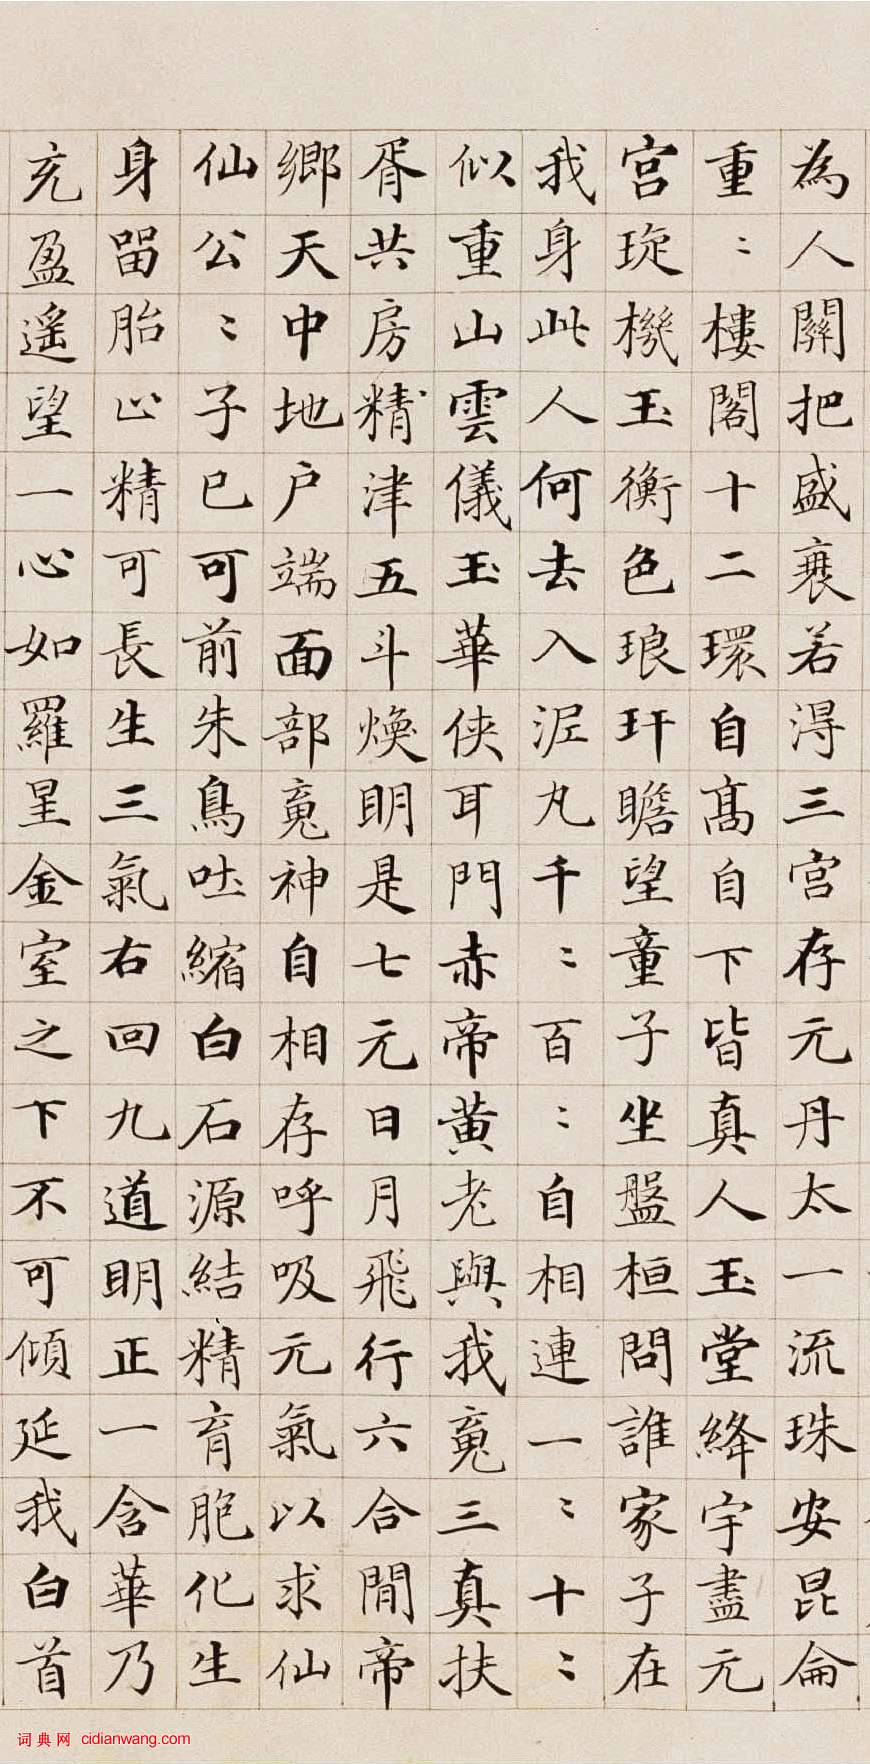 為人關把盛衰若淂三宮存元丹太一流珠安昆侖
重〻樓閣十二環自髙自下皆真人玉堂絳宇盡元
宮琁機玉衡色琅玕瞻望童子坐盤桓問誰家子在
我身此人何去入泥丸千〻百〻自相連一〻十〻
似重山雲儀玉華俠耳門赤帝黄老與我䰟三真扶
胥共房精津五斗煥明是七元日月飛行六合閒帝
鄉天中地户端面部䰟神自相存呼吸元氣以求仙
仙公〻子已可前朱鳥吐縮白石源結精育胞化生
身留胎止精可長生三氣右回九道明正一含華乃
充盈遥望一心如羅星金室之下不可傾延我白首
词典网 cidianwang.com